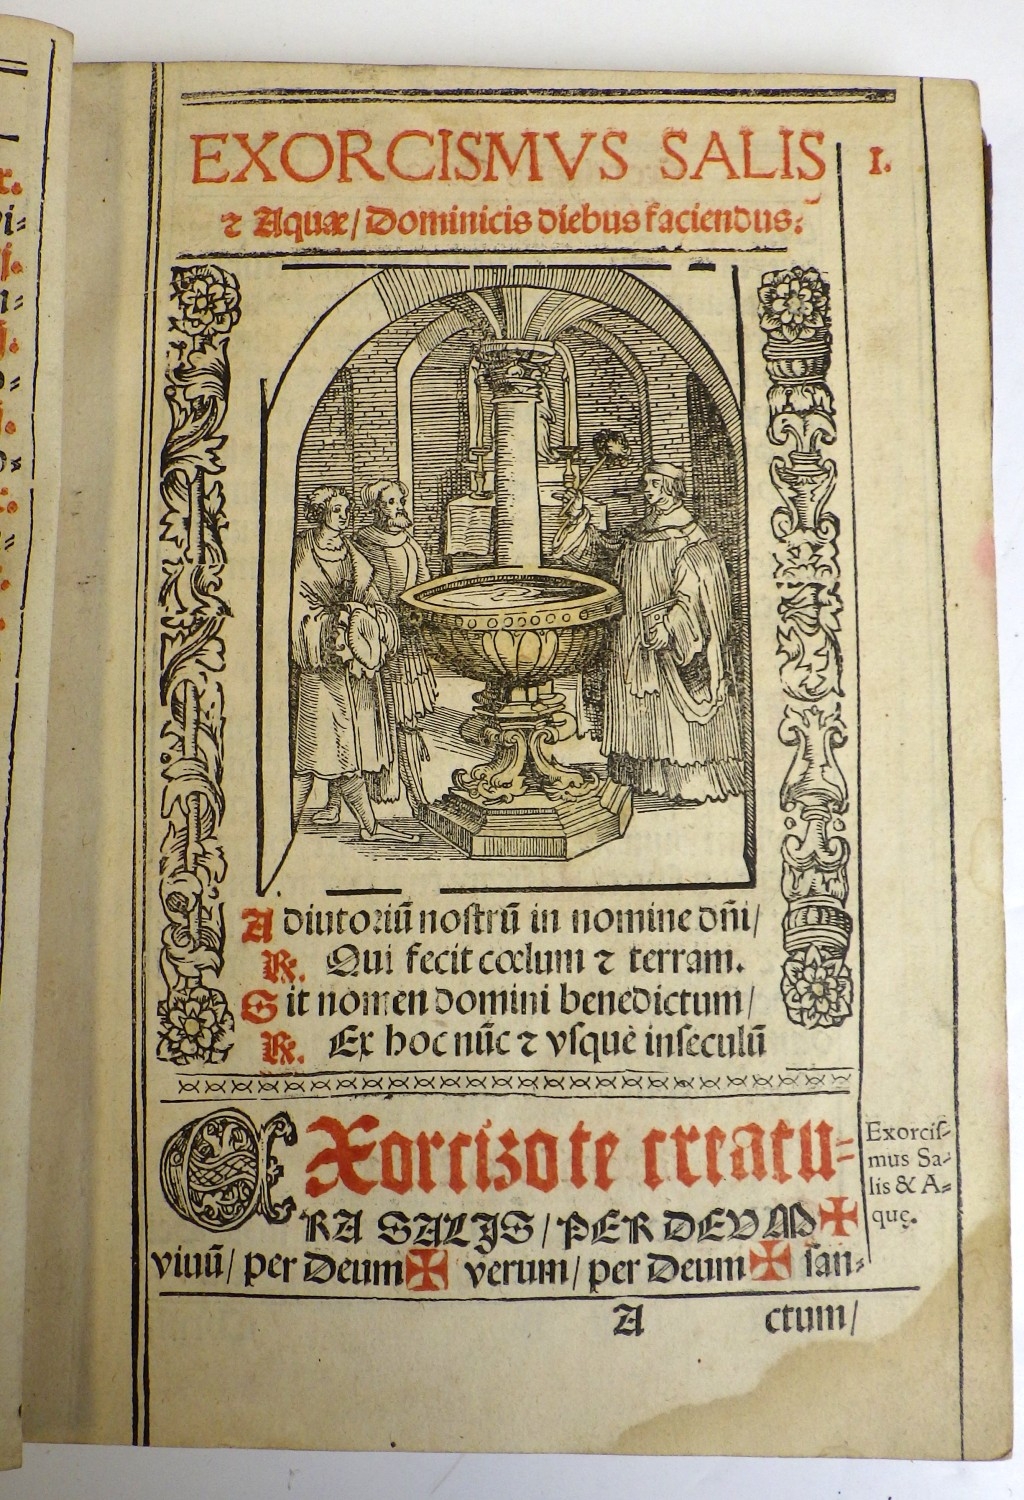 EXORCISMVS SALIS
I.
⁊ Aquæ/ Dominicis diebus faciendus.
Adiutoriū nostrū in nomine dñi/
℟. Qui fecit cœlum ⁊ terram.
Sit nomen domini benedictum/
℟. Ex hoc nūc ⁊ vsquè inseculū
EXorcizo te creatu-
RA SALIS/ PER DEVM ✠
viuū/ per Deum ✠ verum/ per Deum ✠ san-
Exorcis-
mus Sa-
lis & A-
quę.
A ctum/